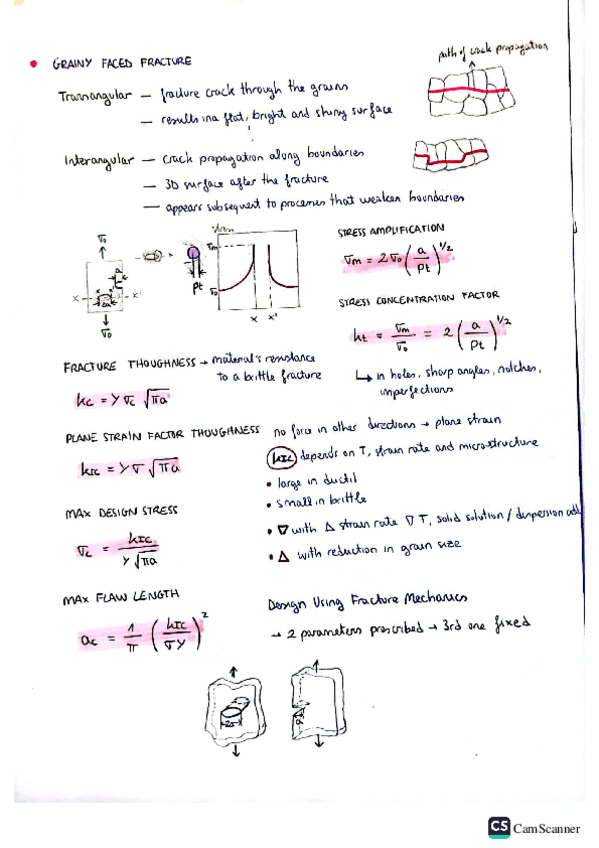 • GRAINY FACED FRACTURE
path of crack propagation
Transangular — fracture crack through the grains
— results in a flat, bright and shiny surface
Interangular — crack propagation along boundaries
— 3D surface after the fracture
— appears subsequent to processes that weaken boundaries
σo
x x'
2a
σo
ρt
σm
σo
x x'
STRESS AMPLIFICATION
σm = 2σo (a/ρt)^1/2
STRESS CONCENTRATION FACTOR
kt = σm/σo = 2 (a/ρt)^1/2
↳ in holes, sharp angles, notches,
imperfections
FRACTURE THOUGHNESS → material's resistance
to a brittle fracture
kc = Y σc √πa
PLANE STRAIN FACTOR THOUGHNESS
no force in other directions → plane strain
kIC = Y σ √πa
kIC depends on T, strain rate and microstructure
• large in ductil
• small in brittle
• ∇ with Δ strain rate ∇ T, solid solution / dispersion add
• Δ with reduction in grain size
MAX DESIGN STRESS
σc = kIC / Y√πa
MAX FLAW LENGTH
ac = 1/π (kIC/σY)^2
Design Using Fracture Mechanics
→ 2 parameters prescribed → 3rd one fixed
2a
a
CS CamScanner